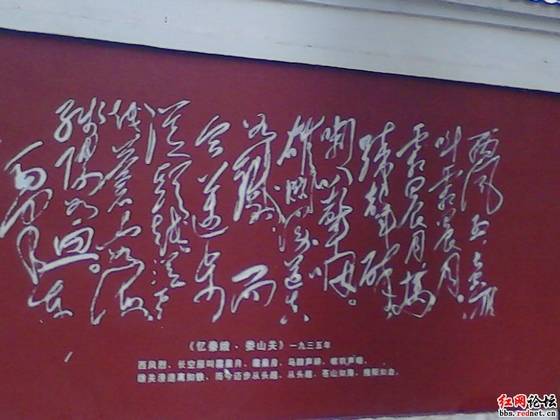 西风烈 长空雁
叫霜晨月。
霜晨月 马
蹄声碎
喇叭声咽。
雄关漫道真
如铁 而
今迈步
从头越 从头
越 苍山如海
残阳如血。
毛泽东
《忆秦娥·娄山关》一九三五年
西风烈，长空雁叫霜晨月。霜晨月，马蹄声碎，喇叭声咽。
雄关漫道真如铁，而今迈步从头越。从头越，苍山如海，残阳如血。
红网论坛
bbs.rednet.cn